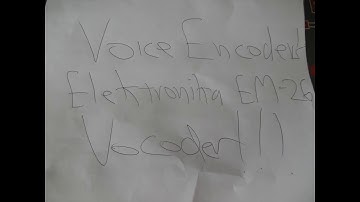 Voice Encoder
Elektronika EM-26
Vocoder!!!